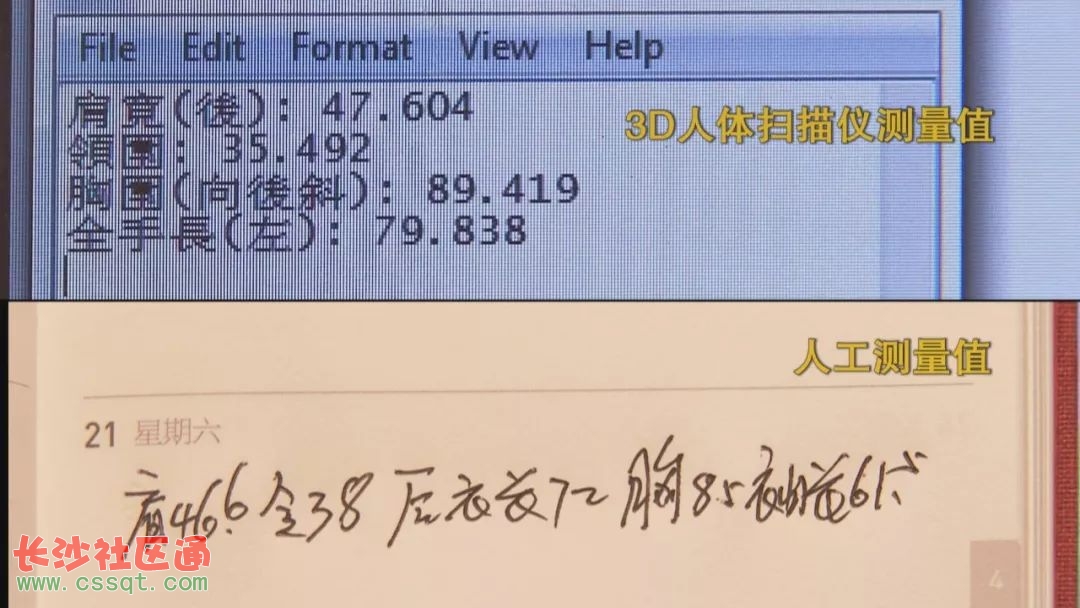 File Edit Format View Help
肩寬(後): 47.604
3D人体扫描仪测量值
領圍: 35.492
胸圍(向後斜): 89.419
全手長(左): 79.838
人工测量值
21 星期六
肩46.6 全38 后衣长72 胸85 61.5
4
长沙社区通
www.cssqt.com